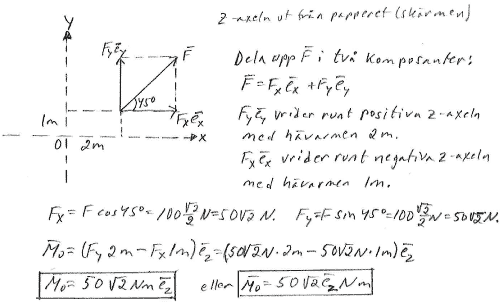 z-axeln ut från papperet (skärmen)
y
F_y ē_y
F̄
45°
F_x ē_x
1m
0
2m
x
Dela upp F̄ i två komposanter:
F̄ = F_x ē_x + F_y ē_y
F_y ē_y vrider runt positiva z-axeln
med hävarmen 2m.
F_x ē_x vrider runt negativa z-axeln
med hävarmen 1m.
F_x = F cos 45° = 100 √2/2 N = 50√2 N. F_y = F sin 45° = 100 √2/2 N = 50√2 N.
M̄_0 = (F_y 2m - F_x 1m) ē_z = (50√2 N · 2m - 50√2 N · 1m) ē_z
M̄_0 = 50√2 Nm ē_z eller M̄_0 = 50√2 ē_z Nm